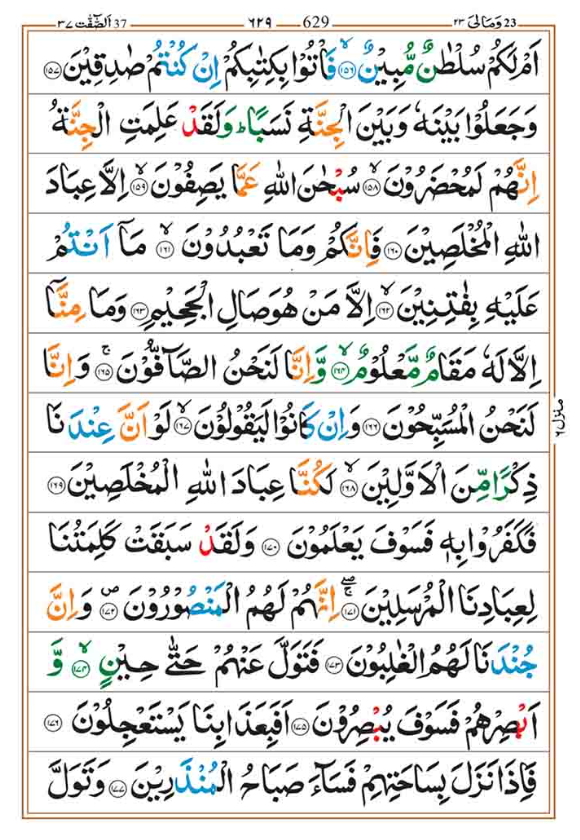 23 وَمَالِیَ ٢٣ 629 ٦٢٩ 37 اَلصّٰٓفّٰت ٣٧
اَمْ لَكُمْ سُلْطٰنٌ مُّبِيْنٌ ۙ‏﴿۱۵۶﴾ فَاْتُوْا بِكِتٰبِكُمْ اِنْ كُنْتُمْ صٰدِقِيْنَ ﴿۱۵۷﴾
وَجَعَلُوْا بَيْنَهٗ وَبَيْنَ الْجِنَّةِ نَسَبًا ؕ وَلَقَدْ عَلِمَتِ الْجِنَّةُ
اِنَّهُمْ لَمُحْضَرُوْنَ ۙ﴿۱۵۸﴾ سُبْحٰنَ اللّٰهِ عَمَّا يَصِفُوْنَ ۙ﴿۱۵۹﴾ اِلَّا عِبَادَ
اللّٰهِ الْمُخْلَصِيْنَ ﴿۱۶۰﴾ فَاِنَّكُمْ وَمَا تَعْبُدُوْنَ ۙ﴿۱۶۱﴾ مَاۤ اَنْتُمْ
عَلَيْهِ بِفٰتِنِيْنَ ۙ﴿۱۶۲﴾ اِلَّا مَنْ هُوَ صَالِ الْجَحِيْمِ ﴿۱۶۳﴾ وَمَا مِنَّاۤ
اِلَّا لَهٗ مَقَامٌ مَّعْلُوْمٌ ۙ﴿۱۶۴﴾ وَّاِنَّا لَنَحْنُ الصَّآفُّوْنَ ۚ﴿۱۶۵﴾ وَاِنَّا
لَنَحْنُ الْمُسَبِّحُوْنَ ﴿۱۶۶﴾ وَاِنْ كَانُوْا لَيَقُوْلُوْنَ ۙ﴿۱۶۷﴾ لَوْ اَنَّ عِنْدَنَا
ذِكْرًا مِّنَ الْاَوَّلِيْنَ ۙ﴿۱۶۸﴾ لَكُنَّا عِبَادَ اللّٰهِ الْمُخْلَصِيْنَ ﴿۱۶۹﴾
فَكَفَرُوْا بِهٖ فَسَوْفَ يَعْلَمُوْنَ ﴿۱۷۰﴾ وَلَقَدْ سَبَقَتْ كَلِمَتُنَا
لِعِبَادِنَا الْمُرْسَلِيْنَ ۚۖ﴿۱۷۱﴾ اِنَّهُمْ لَهُمُ الْمَنْصُوْرُوْنَ ۪﴿۱۷۲﴾ وَاِنَّ
جُنْدَنَا لَهُمُ الْغٰلِبُوْنَ ﴿۱۷۳﴾ فَتَوَلَّ عَنْهُمْ حَتّٰى حِيْنٍ ۙ﴿۱۷۴﴾ وَّ
اَبْصِرْهُمْ فَسَوْفَ يُبْصِرُوْنَ ﴿۱۷۵﴾ اَفَبِعَذَابِنَا يَسْتَعْجِلُوْنَ ﴿۱۷۶﴾
فَاِذَا نَزَلَ بِسَاحَتِهِمْ فَسَآءَ صَبَاحُ الْمُنْذَرِيْنَ ﴿۱۷۷﴾ وَتَوَلَّ
منزل ٦